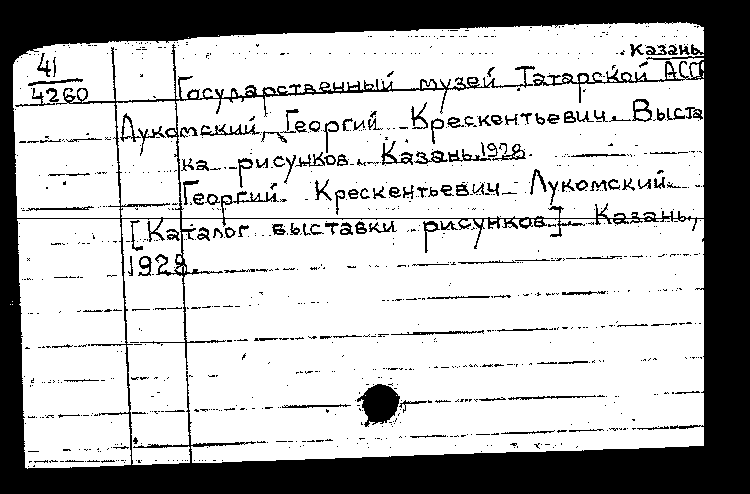 Казань
41
4260
Государственный музей Татарской АССР
Лукомский, Георгий Крескентьевич. Выстав
ка рисунков. Казань. 1928.
Георгий Крескентьевич Лукомский.
[Каталог выставки рисунков]. Казань,
1928.